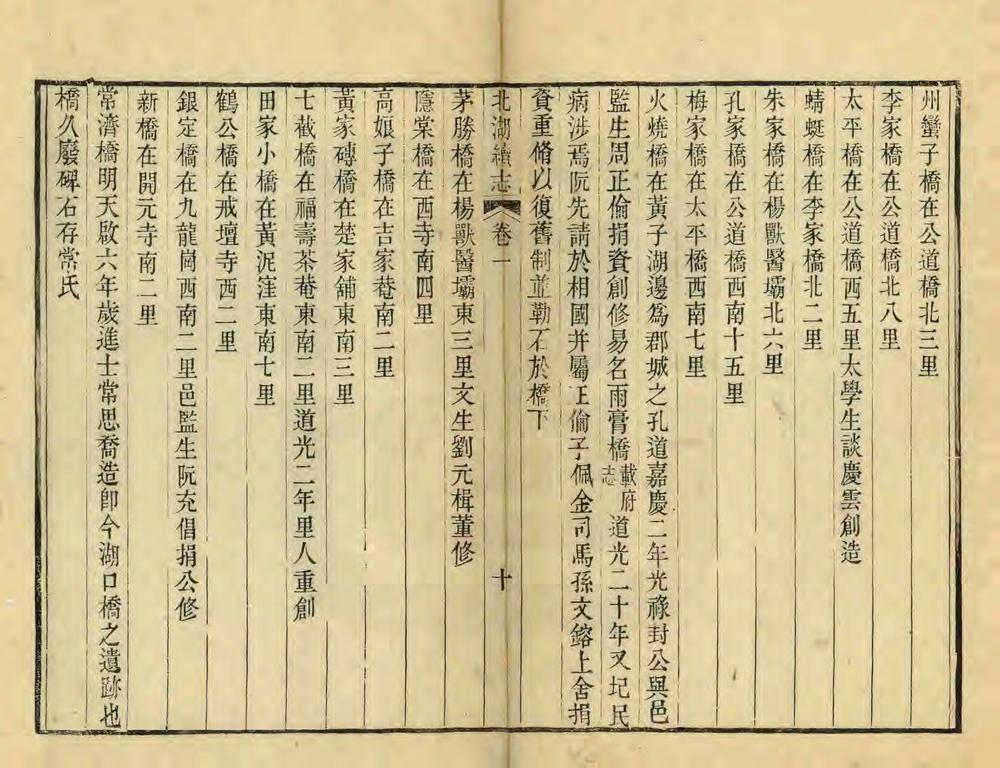 州蠻子橋在公道橋北三里
李家橋在公道橋北八里
太平橋在公道橋西五里太學生談慶雲創造
蜻蜓橋在李家橋北二里
朱家橋在楊獸醫壩北六里
孔家橋在公道橋西南十五里
梅家橋在太平橋西南七里
火燒橋在黃子湖邊為郡城之孔道嘉慶二年光祿封公與邑
監生周正倫捐資創修易名雨膏橋載府志道光二十年又圮民
病涉焉阮先請於相國并屬正倫子佩金司馬孫文鎔上舍捐
資重脩以復舊制並勒石於橋下
北湖續志 卷一 十
茅勝橋在楊獸醫壩東三里文生劉元楫董修
隱棠橋在西寺南四里
高娘子橋在吉家菴南二里
黃家磚橋在楚家舖東南三里
七截橋在福壽茶菴東南二里道光二年里人重創
田家小橋在黃泥窪東南七里
鶴公橋在戒壇寺西二里
銀定橋在九龍崗西南二里邑監生阮充倡捐公修
新橋在開元寺南二里
常濟橋明天啟六年歲進士常思喬造卽今湖口橋之遺跡也
橋久廢碑石存常氏